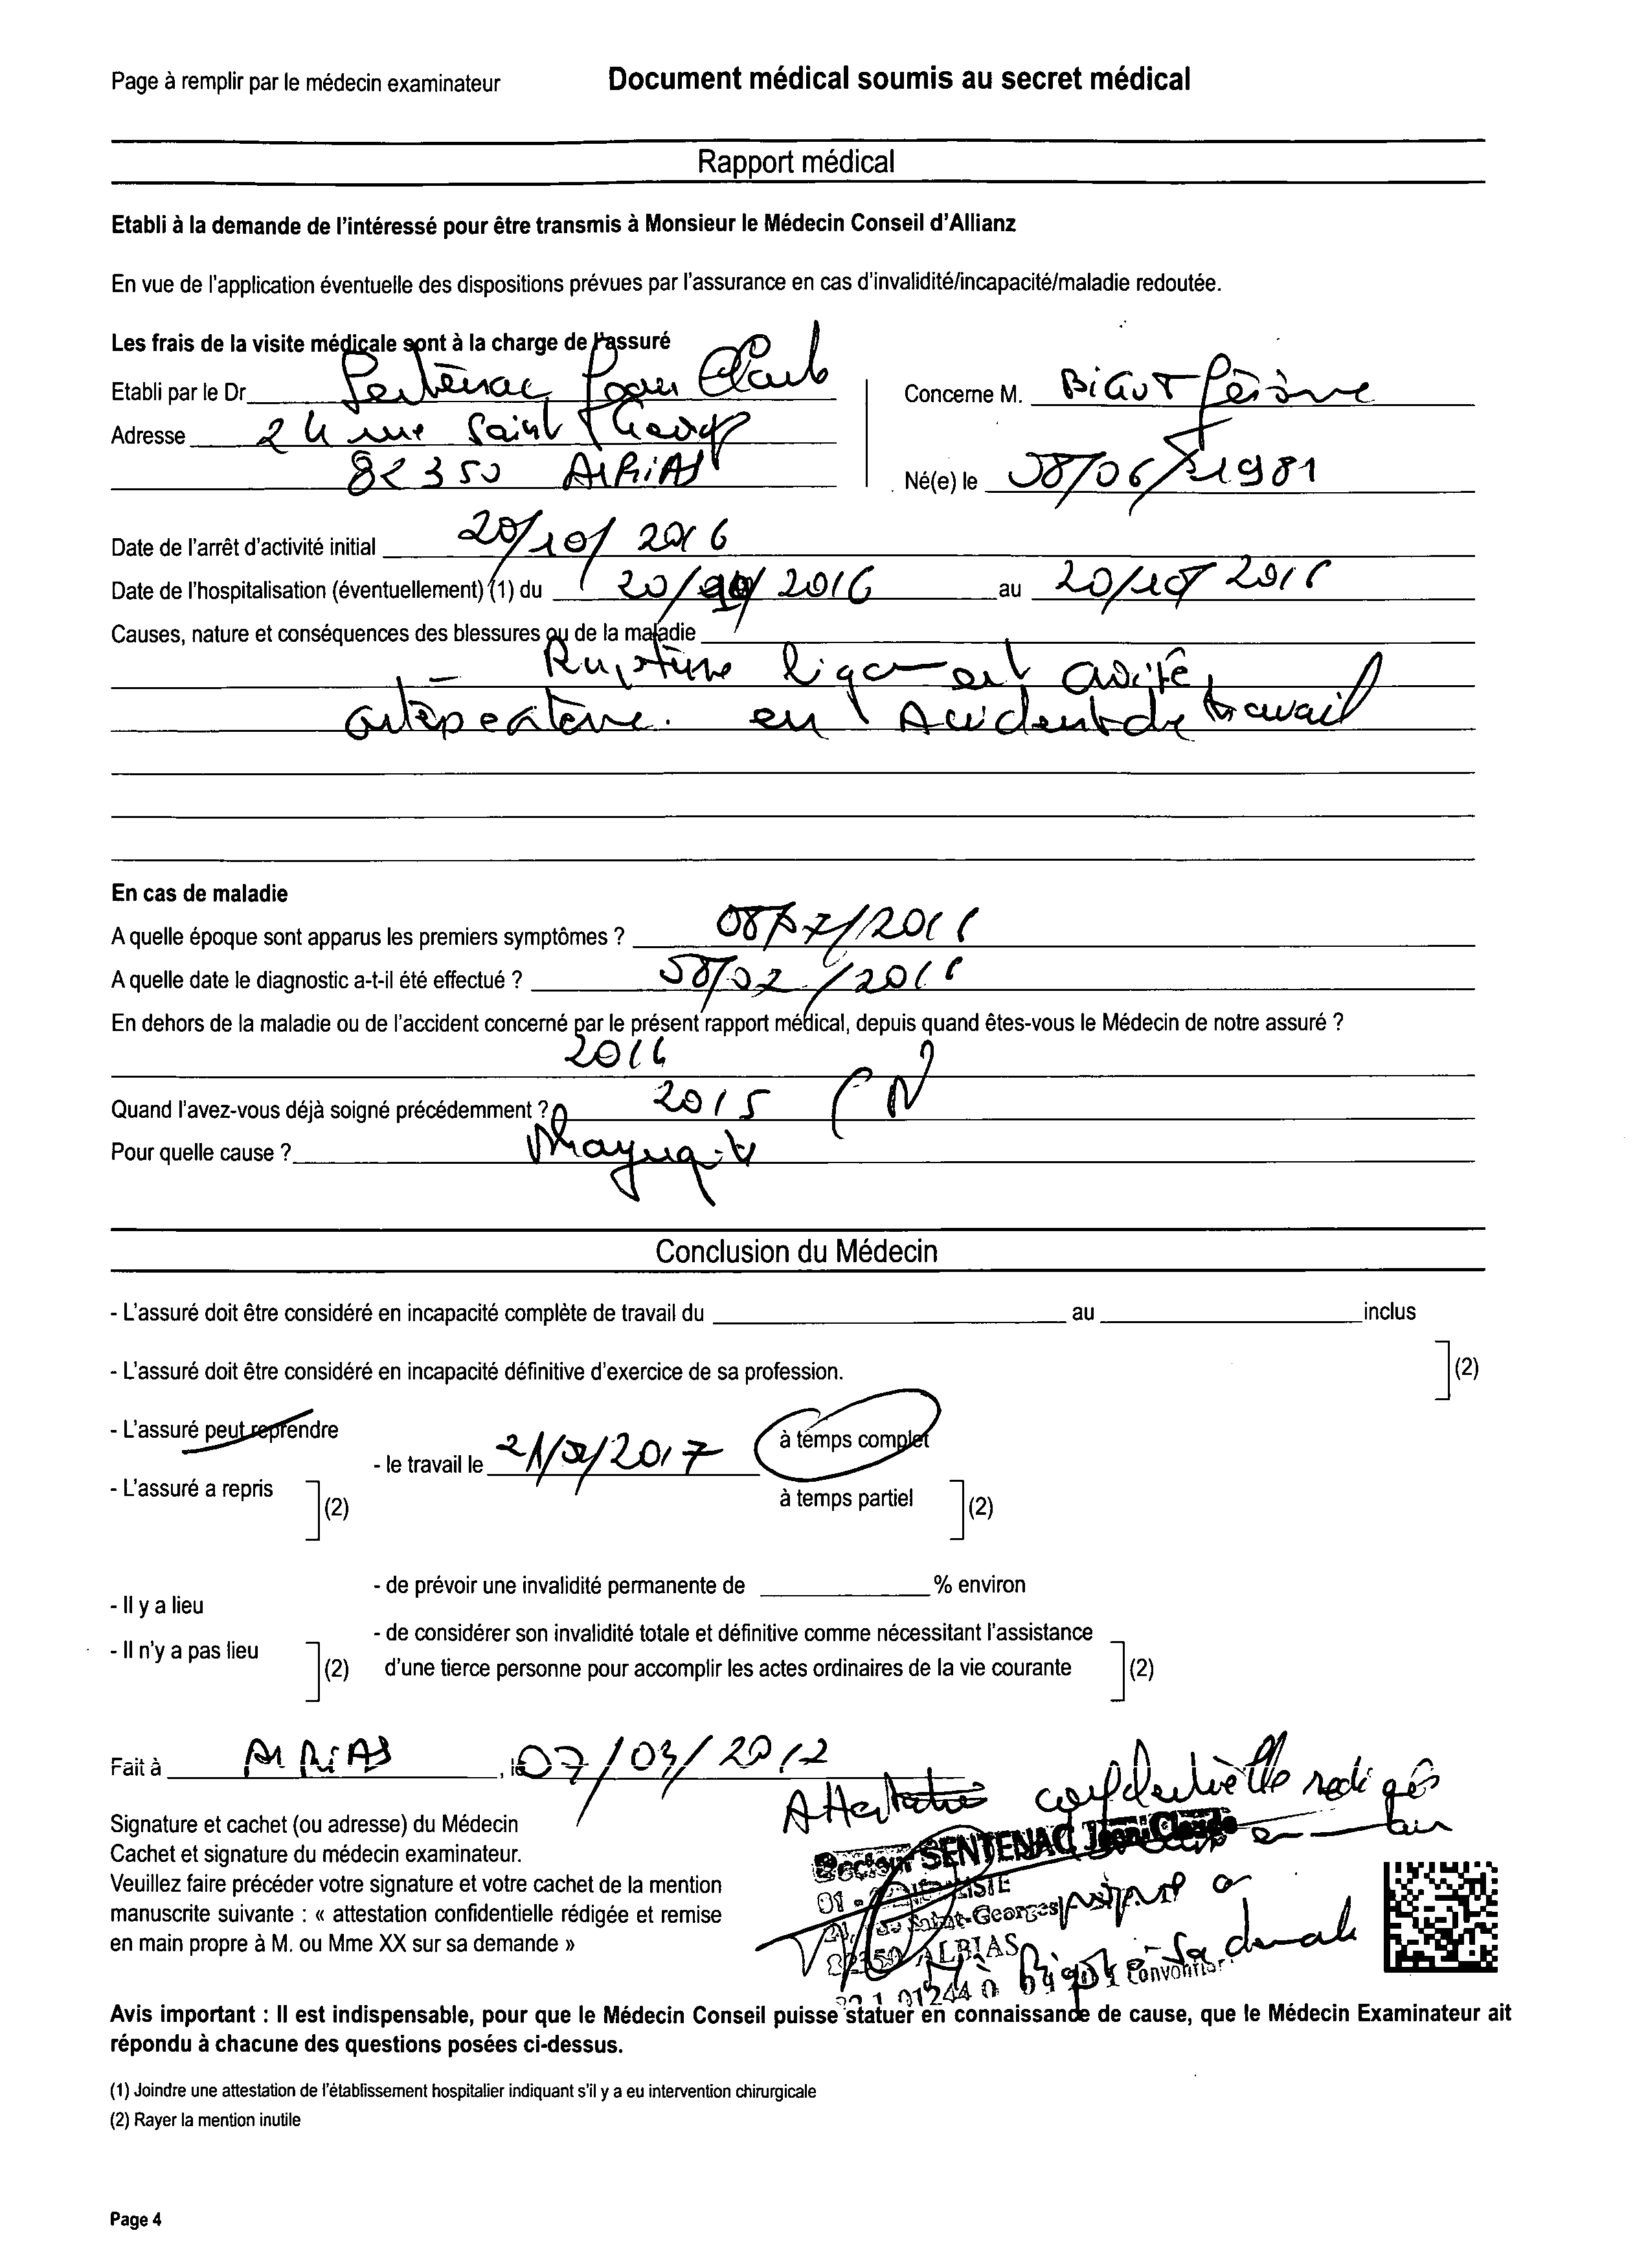 Page à remplir par le médecin examinateur Document médical soumis au secret médical
Rapport médical
Etabli à la demande de l'intéressé pour être transmis à Monsieur le Médecin Conseil d'Allianz
En vue de l'application éventuelle des dispositions prévues par l'assurance en cas d'invalidité/incapacité/maladie redoutée.
Les frais de la visite médicale sont à la charge de l'assuré
Etabli par le Dr Sentenac Jean Claude
Concerne M. BIGOT Jérôme
Adresse 24 rue Saint Georges
82350 AlBiAS
Né(e) le 08/06/1981
Date de l'arrêt d'activité initial 20/10/2016
Date de l'hospitalisation (éventuellement) (1) du 20/10/2016 au 20/10/2016
Causes, nature et conséquences des blessures ou de la maladie
- Rupture ligament croisé
en Accident de travail
En cas de maladie
A quelle époque sont apparus les premiers symptômes ? 08/07/2016
A quelle date le diagnostic a-t-il été effectué ? 08/07/2016
En dehors de la maladie ou de l'accident concerné par le présent rapport médical, depuis quand êtes-vous le Médecin de notre assuré ?
Quand l'avez-vous déjà soigné précédemment ? 2015
Pour quelle cause ?
Conclusion du Médecin
- L'assuré doit être considéré en incapacité complète de travail du au inclus
- L'assuré doit être considéré en incapacité définitive d'exercice de sa profession.
(2)
- L'assuré peut reprendre
- le travail le 21/02/2017 à temps complet
- L'assuré a repris (2) à temps partiel (2)
- de prévoir une invalidité permanente de % environ
- Il y a lieu
- de considérer son invalidité totale et définitive comme nécessitant l'assistance
- Il n'y a pas lieu
(2) d'une tierce personne pour accomplir les actes ordinaires de la vie courante (2)
Fait à AlBiAS , le 07/03/2017
Attestation confidentielle rédigée
Signature et cachet (ou adresse) du Médecin
Docteur SENTENAC Jean Claude
Cachet et signature du médecin examinateur.
Veuillez faire précéder votre signature et votre cachet de la mention
manuscrite suivante : « attestation confidentielle rédigée et remise
Saint-Georges
en main propre à M. ou Mme XX sur sa demande »
82350 ALBIAS
à sa demande
Avis important : Il est indispensable, pour que le Médecin Conseil puisse statuer en connaissance de cause, que le Médecin Examinateur ait
répondu à chacune des questions posées ci-dessus.
(1) Joindre une attestation de l'établissement hospitalier indiquant s'il y a eu intervention chirurgicale
(2) Rayer la mention inutile
Page 4